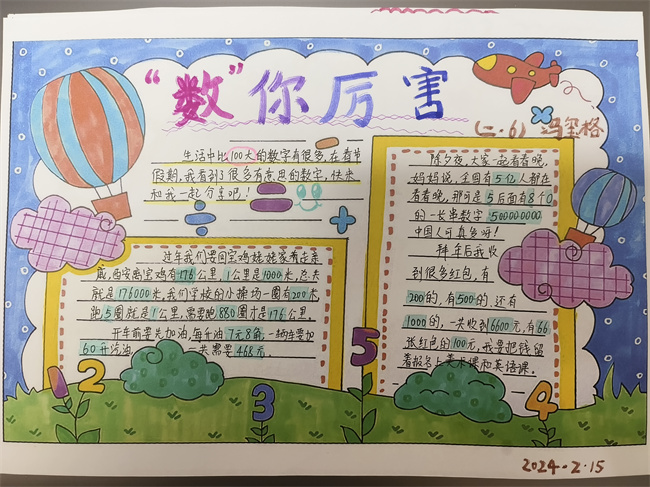 “数”你厉害
(二.6) 冯玺格
生活中比100大的数字有很多,在春节
假期,我看到了很多有意思的数字,快来
和我一起分享吧!
过年我们要回宝鸡姥姥家看走亲
戚,西安离宝鸡有176公里,1公里是1000米,总夫
就是176000米,我们学校的小操场一圈有200米
跑5圈就是1公里,需要跑880圈才是176公里.
开车前要先加油,每升油7元8角,一辆车要加
60升汽油 一共需要468元.
除夕夜,大家一起看春晚,
妈妈说,全国有5亿人都在
看春晚,那可是5后面有8个0
的一长串数字500000000
中国人可真多呀!
拜年后我收
到很多红包,有
200的,有500的,还有
1000的,一共收到6600元,有66
张红包的100元,我要把钱留
着报名上美术课和英语课.
1
2
3
4
5
2024.2.15